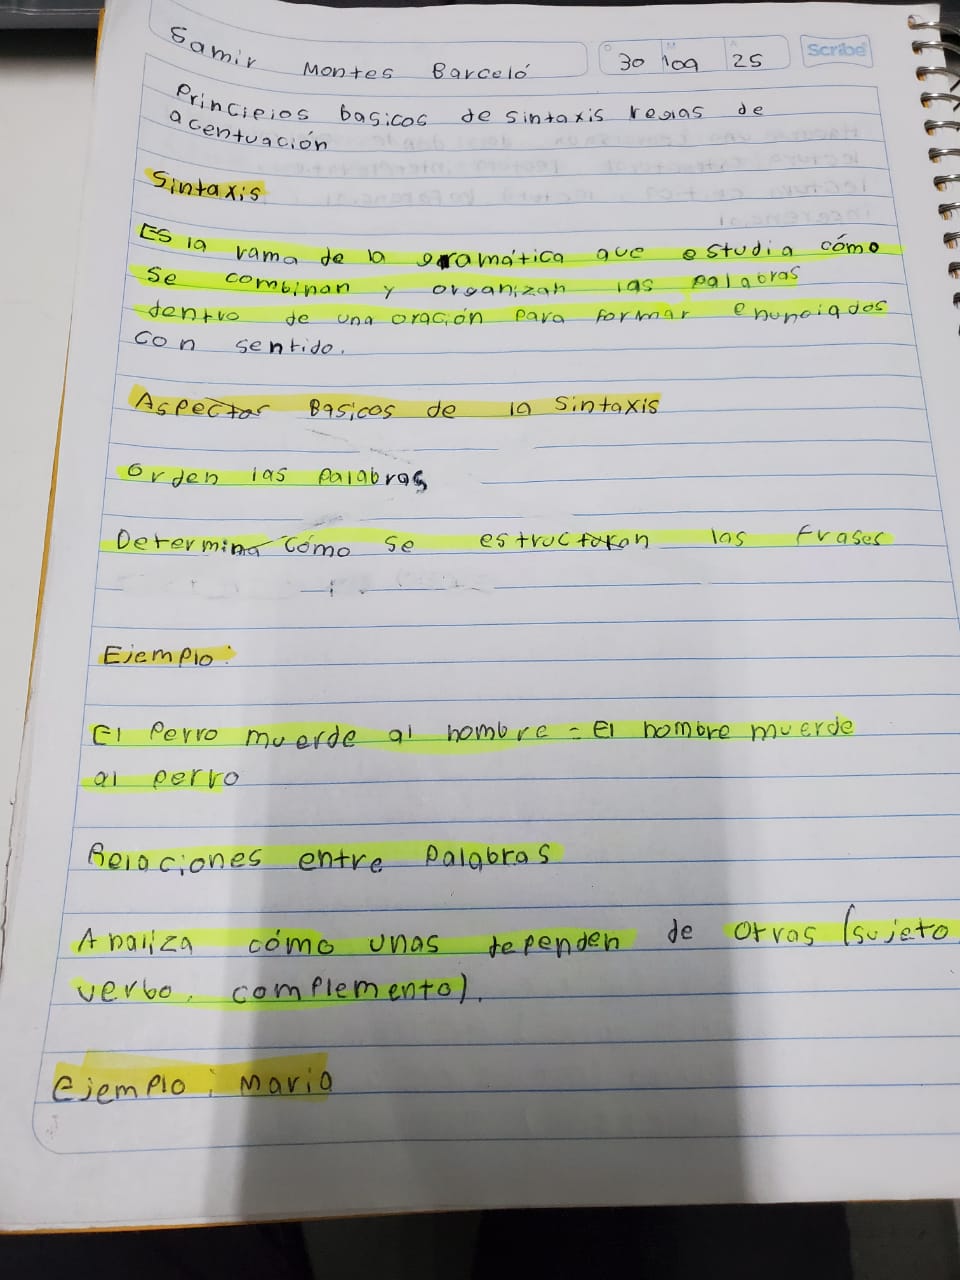 Samir Montes Barceló
D M A
30 09 25
Scribe
Principios basicos de sintaxis reglas de
acentuación
Sintaxis
Es la rama de la gramática que estudia cómo
se combinan y organizan las palabras
dentro de una oración para formar enunciados
con sentido.
Aspectos Basicos de la sintaxis
Orden las palabras
Determina cómo se estructuran las frases
Ejemplo:
El Perro muerde al hombre = El hombre muerde
al perro
Relaciones entre Palabras
Analiza cómo unas dependen de otras (sujeto
verbo, complemento).
Ejemplo: Maria